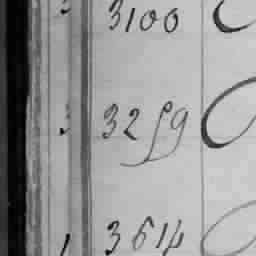 3100
3259
3614